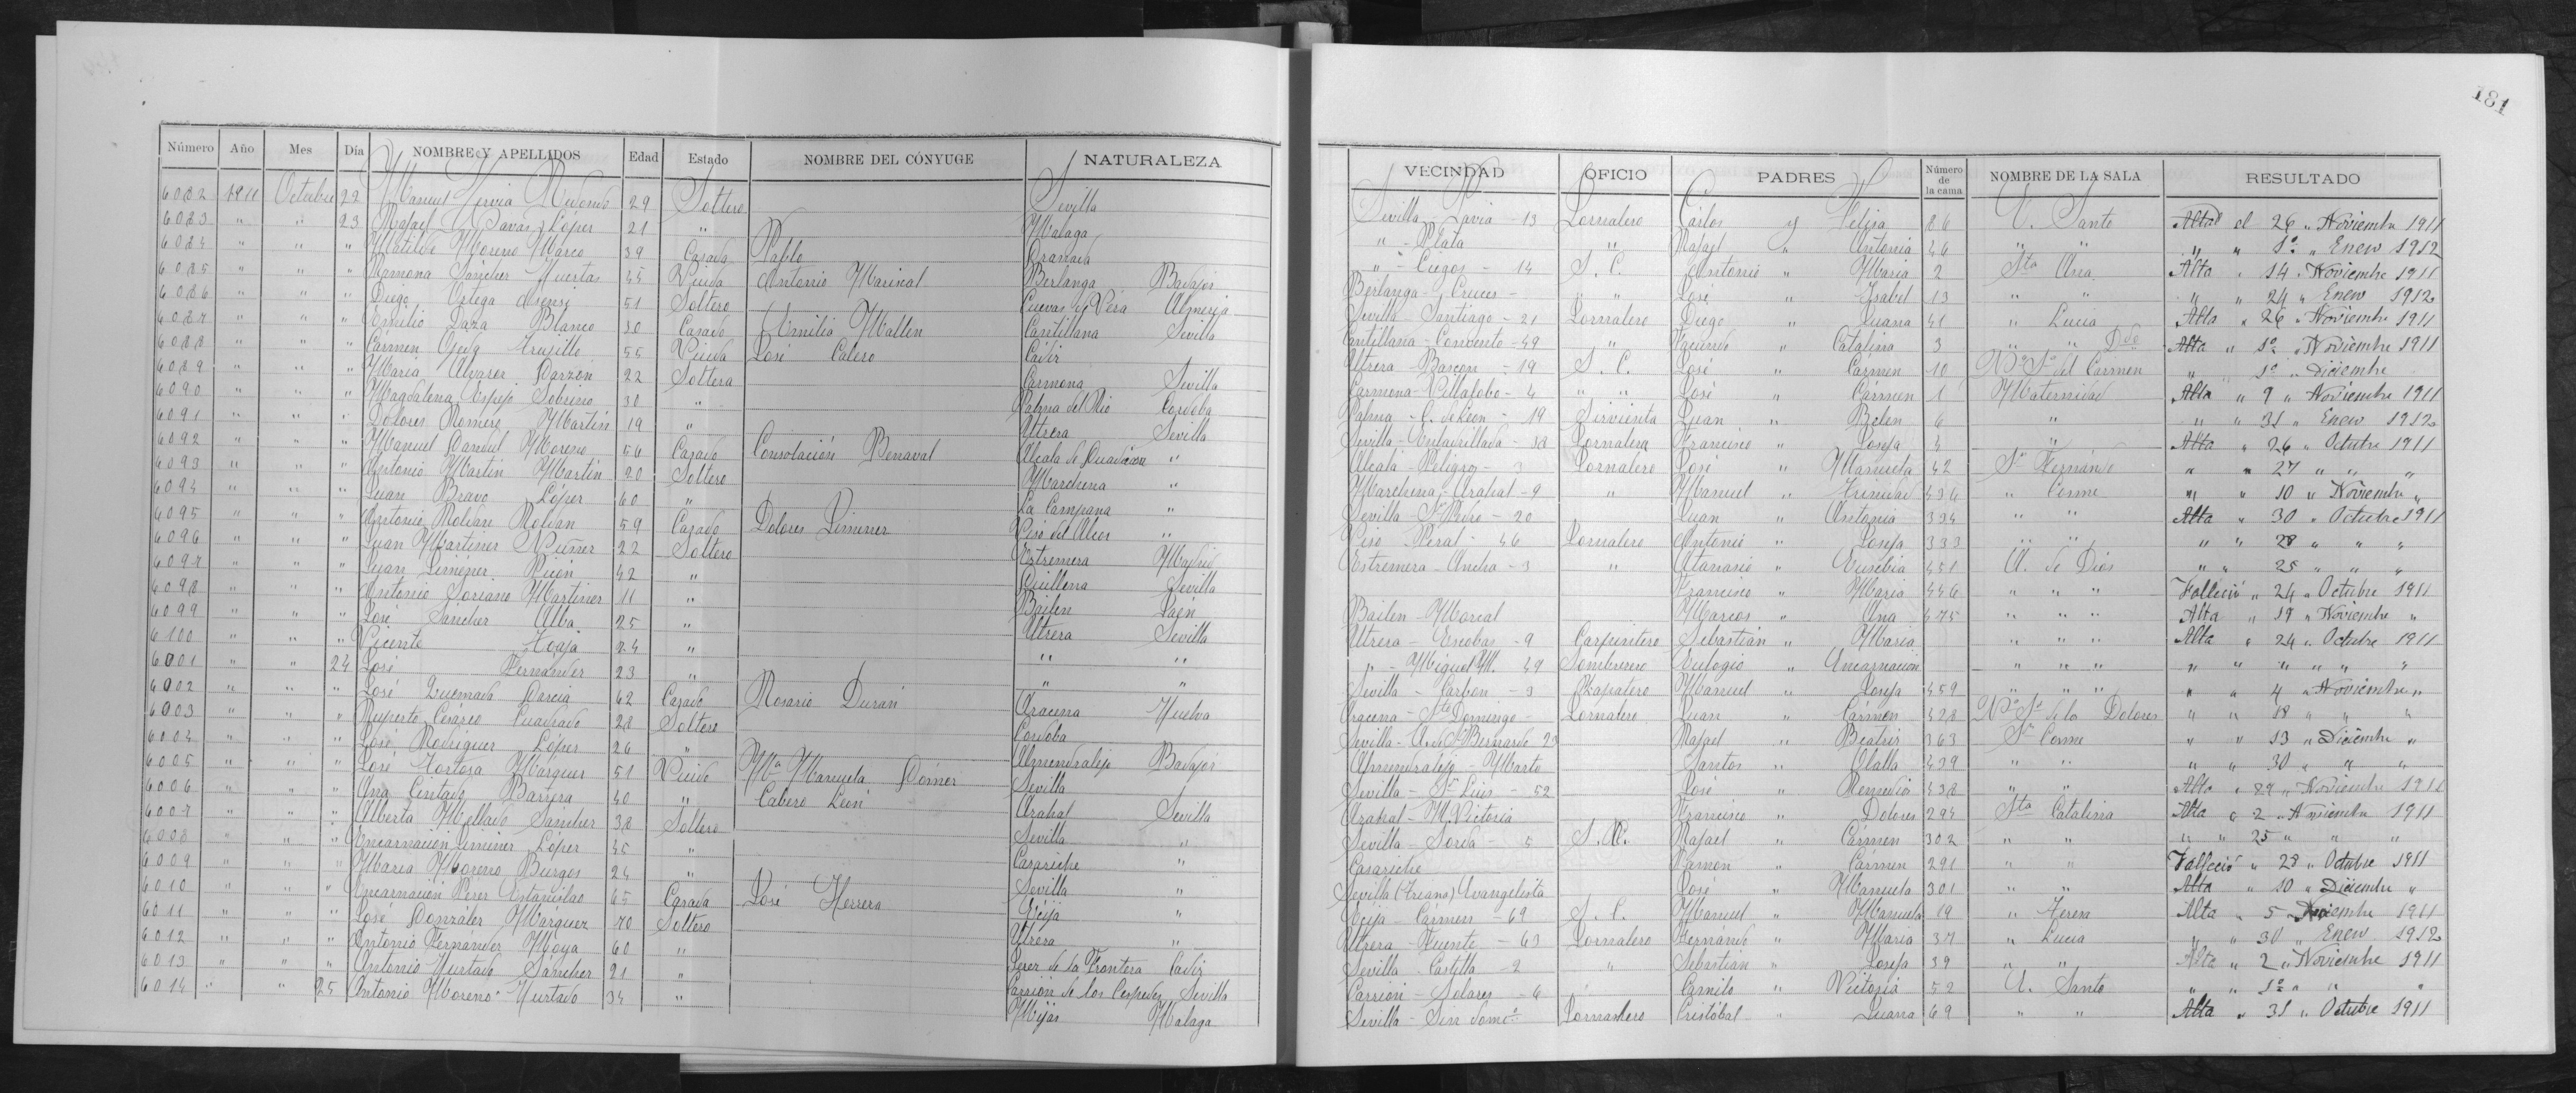 181
Número Año Mes Día NOMBRE Y APELLIDOS Edad Estado NOMBRE DEL CÓNYUGE NATURALEZA
6082 1911 Octubre 22 Manuel Hervia Redondo 29 Soltero Sevilla
6083 " " 23 Rafael Navas López 21 " Malaga
6084 " " " Matilde Moreno Marco 39 Casada Pablo Granada
6085 " " " Ramona Sáncher Huertas 45 Viuda Antonio Mariscal Berlanga Badajoz
6086 " " " Diego Ortega Asensi 51 Soltero Cuevas de Vera Almeria
6087 " " " Emilio Daza Blanco 30 Casado Emilia Mallen Cantillana Sevilla
6088 " " " Carmen Ojeda Trujillo 55 Viuda José Calero Cádiz
6089 " " " Maria Alvarez Garzon 22 Soltera Carmona Sevilla
6090 " " " Magdalena Espejo Sobrino 30 " Palma del Rio Cordoba
6091 " " " Dolores Romero Martin 19 " Utrera Sevilla
6092 " " " Manuel Gandul Moreno 56 Casado Consolación Benaval Alcala de Guadaira "
6093 " " " Antonio Martin Martin 20 Soltero Marchena "
6094 " " " Juan Bravo López 60 " La Campana "
6095 " " " Antonio Roldan Roldan 59 Casado Dolores Jimenez Viso del Alcor "
6096 " " " Juan Martinez Nuñez 22 Soltero Estremera Madrid
6097 " " " Juan Jiménez 42 " Guillena Sevilla
6098 " " " Antonio Soriano Martinez 11 " Bailen Jaén
6099 " " " José Sáncher Alba 25 " Utrera Sevilla
6100 " " " Vicente 24 " " "
6001 " " 24 José Fernandez 23 " " "
6002 " " " José Quemada Garcia 62 Casado Rosario Durán Aracena Huelva
6003 " " " Ruperto Cesáreo Cuadrado 28 Soltero Cordoba
6004 " " " José Rodriguez López 26 " Almendralejo Badajoz
6005 " " " José Tortosa Marquez 51 Viudo Mª Manuela Gómez Sevilla
6006 " " " Ana Cintado Barrera 40 " Cabero León Arahal Sevilla
6007 " " " Alberta Mellado Sáncher 38 Soltero Sevilla "
6008 " " " Encarnacion Jiminez López 45 " Casariche "
6009 " " " Maria Moreno Burgos 24 " Sevilla "
6010 " " " Encarnación Perez Estanislao 65 Casada José Herrera Ecija "
6011 " " " José González Márquez 70 Soltero Utrera "
6012 " " " Antonio Fernández Moya 60 " Jerez de la Frontera Cadiz
6013 " " " Antonio Hurtado Sáncher 21 " Carrion de los Cespedes Sevilla
6014 " " 25 Antonio Moreno Hurtado 34 " Mijas Malaga
VECINDAD OFICIO PADRES Número de la cama NOMBRE DE LA SALA RESULTADO
Sevilla - Pavia - 13 Jornalero Cárlos y Felisa 86 E. Santo Alta el 26 " Noviembre 1911
" - Plata " Rafael " Antonia 46 " " " " 1º " Enero 1912
" - Ciegos - 14 S. C. Antonio " Maria 2 Sta Ana Alta " 14 " Noviembre 1911
Berlanga - Cruces - " " José " Isabel 13 " " " " 24 " Enero 1912
Sevilla - Santiago - 21 Jornalero Diego " Juana 41 " Lucia Alta " 26 " Noviembre 1911
Cantillana - Convento - 49 " Facundo " Catalina 3 " " Alta " 1º " Noviembre 1911
Utrera - Bascon - 19 S. C. José " Cármen 10 Nª Sª del Carmen " " 1º " Diciembre
Carmona - Villalobo - 4 " " José " Cármen 1 Maternidad Alta " 9 " Noviembre 1911
Palma - C. de Leon - 19 Sirvienta Juan " Belen 6 " " " 31 " Enero 1912
Sevilla - Enladrillada - 18 Jornalera Francisco " Josefa 4 " Alta " 26 " Octubre 1911
Alcalá - Peligro - 3 Jornalero José " Manuela 42 Sn Fernándo " " 27 " " "
Marchena - Arahal - 9 " Manuel " Trinidad 436 " Cosme " " 10 " Noviembre "
Sevilla Sn Pedro - 20 Juan " Antonia 394 " " Alta " 30 " Octubre 1911
Viso - Peral - 46 Jornalero Antonio " Josefa 393 " " " " 28 " " "
Estremera - Ancha - 3 " Atanasio " Eusebia 451 A. de Dios " " 25 " " "
Francisco " Maria 446 " " " Falleció " 24 " Octubre 1911
Bailen - Moreal Marcos " Ana 475 " " " Alta " 19 " Noviembre "
Utrera - Escobar - 9 Carpintero Sebastián " Maria " " " Alta " 24 " Octubre 1911
" - Miguel M. 49 Sombrerero Eulogio " Encarnacion " " " " " " " " "
Sevilla - Carbon - 3 Zapatero Manuel " Josefa 459 " " " " " 4 " Noviembre "
Aracena - Sto Domingo - Jornalero Juan " Cármen 428 Nª Sª de los Dolores " " 18 " " "
Sevilla - A. de Sn Bernardo 23 Rafael " Beatriz 363 Sn Cosme " " 13 " Diciembre "
Almendralejo - Marto Santos " Olalla 439 " " " " 30 " " "
Sevilla - Sn Luis - 52 José " Remedios 438 " " Alta " 29 " Noviembre 1911
Arahal - M. Victoria Francisco " Dolores 294 Sta Catalina Alta " 2 " Noviembre 1911
Sevilla - Sorda 5 S. C. Rafael " Cármen 302 " " " " 25 " " "
Casariche Ramon " Cármen 291 " " Falleció " 28 " Octubre 1911
Sevilla (Triana) Evangelista José " Manuela 301 " " Alta " 10 " Diciembre "
Ecija - Cármen - 69 S. C. Manuel " Manuela 19 " Teresa Alta " 5 1911
Utrera - Fuente - 63 Jornalero Fernándo " Maria 37 " Lucia " " 30 " Enero 1912
Sevilla - Castilla - 2 " Sebastian " Josefa 39 " " Alta " 2 " Noviembre 1911
Carrion - Solares - 6 " Camilo " Victoria 52 E. Santo " " 1º " " "
Sevilla - Sin domº Jornalero Cristóbal " Juana 69 " " Alta " 31 " Octubre 1911